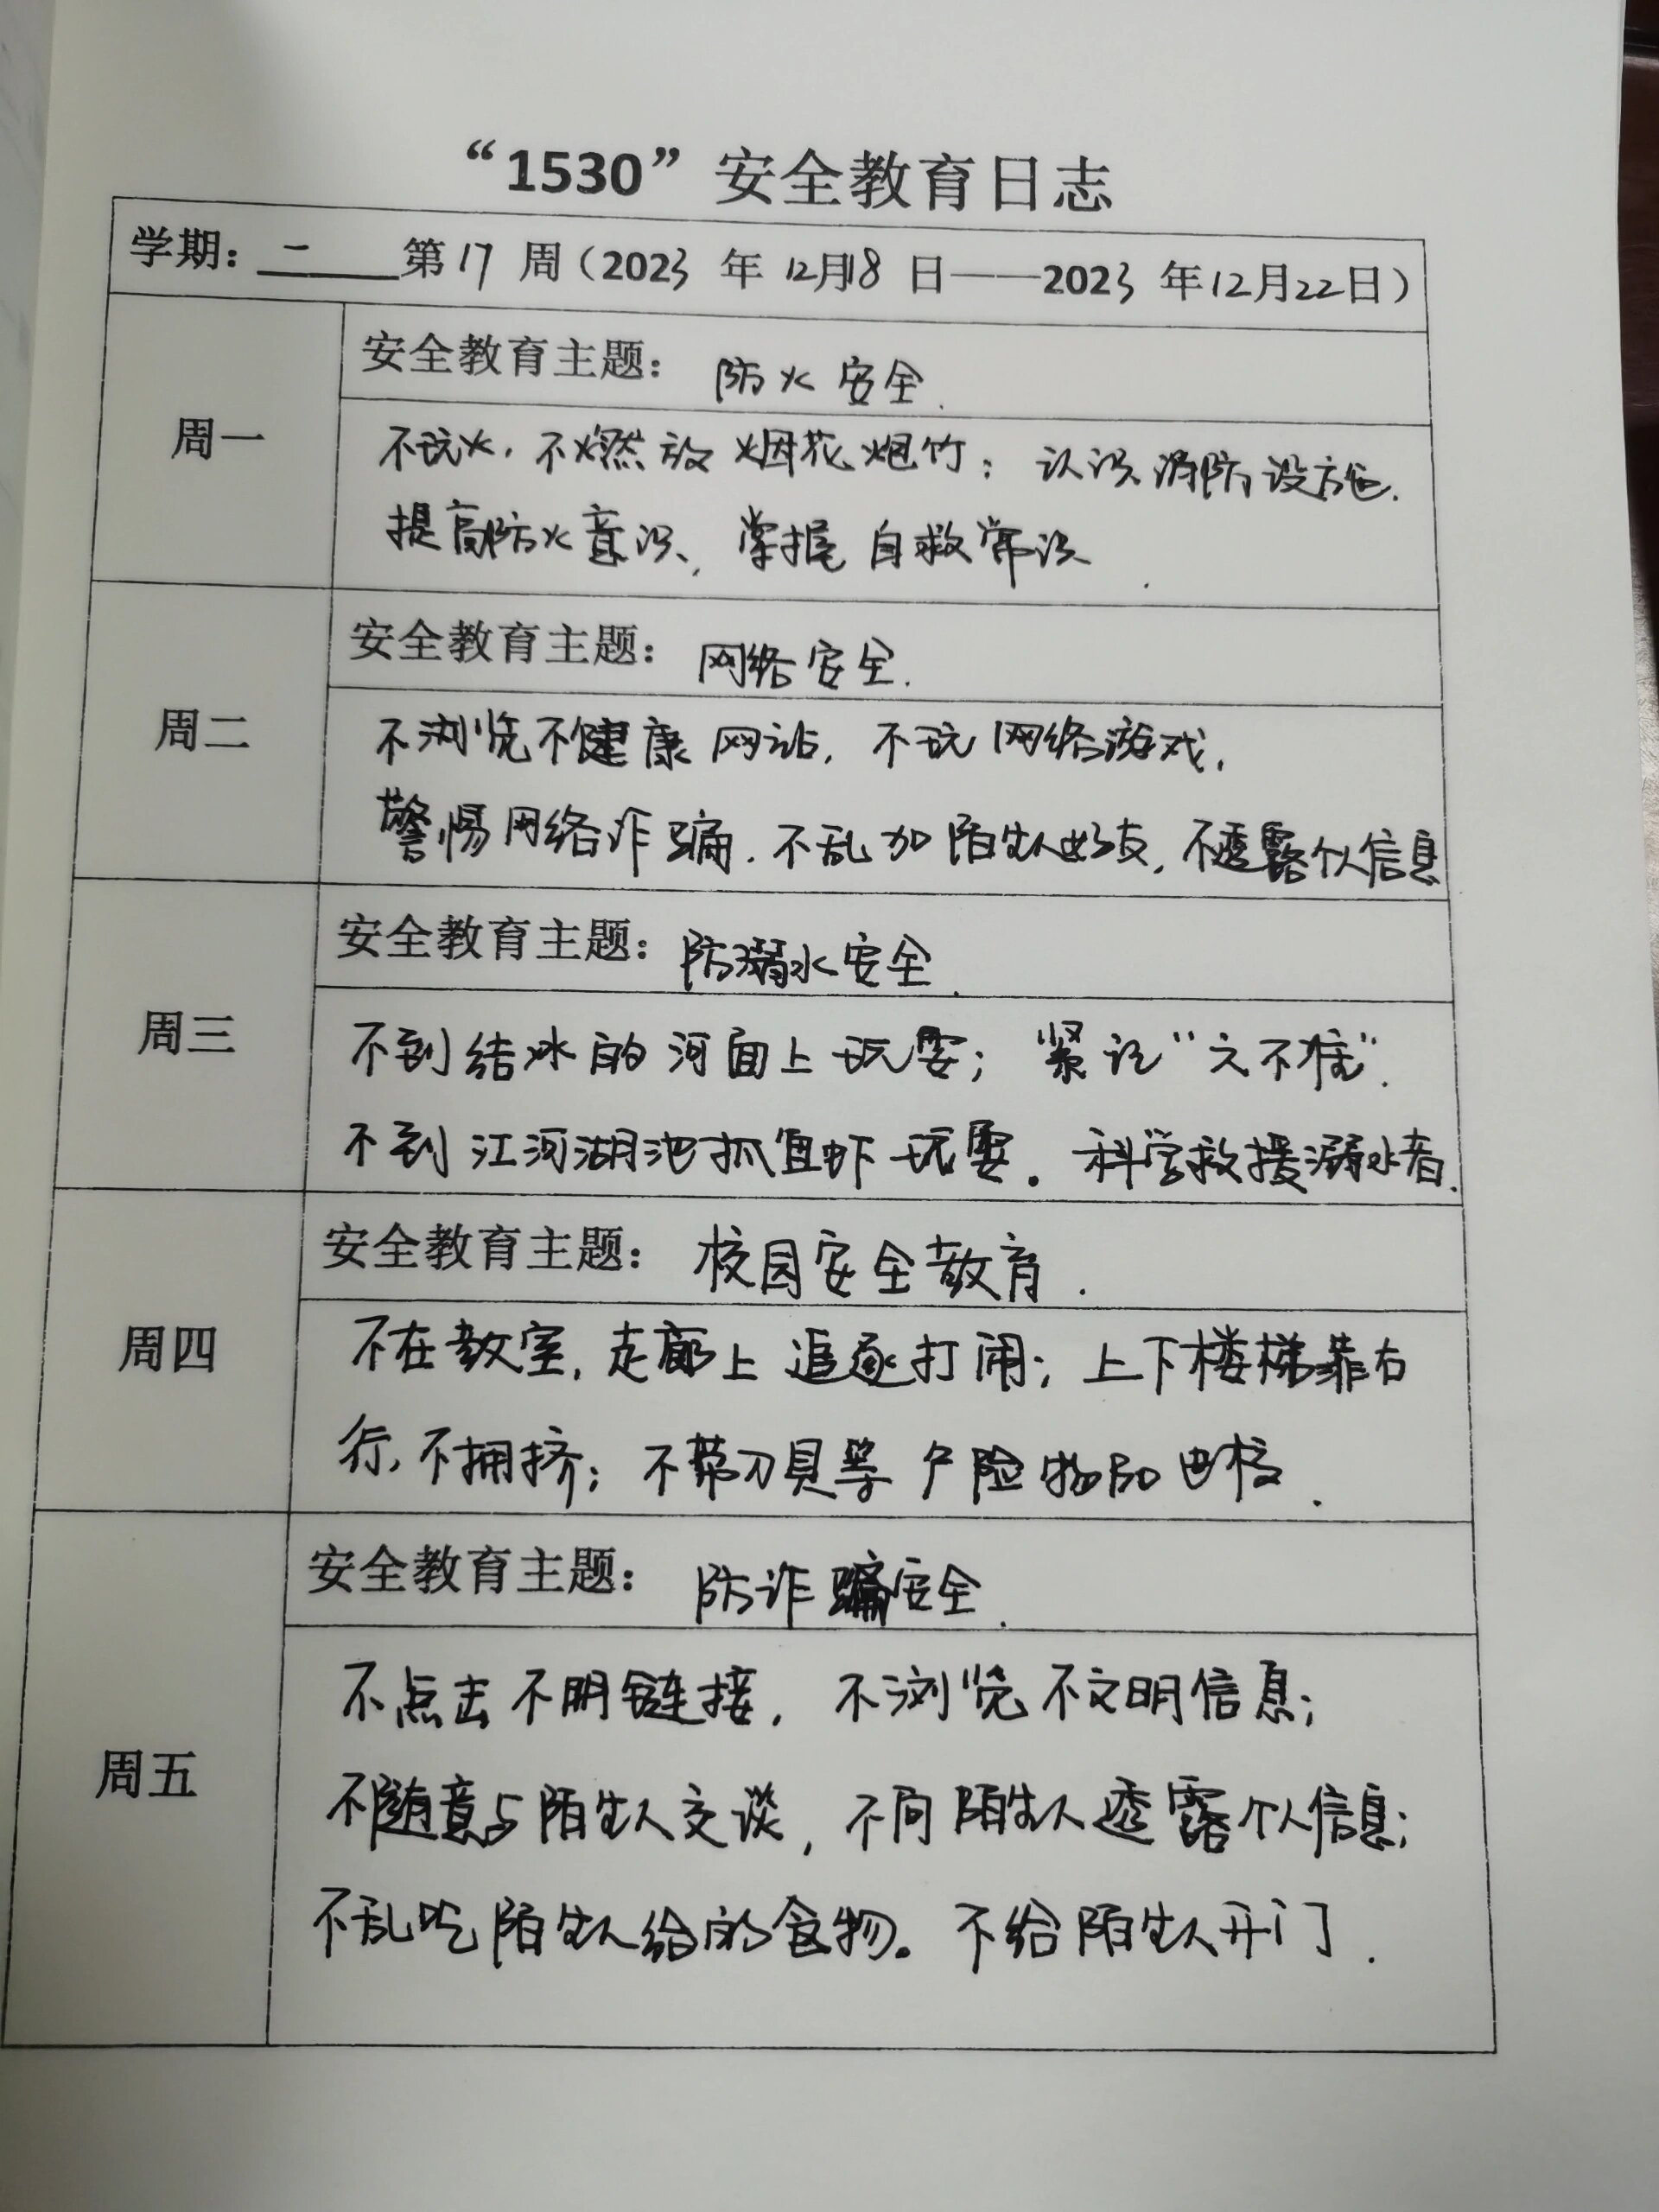 “1530”安全教育日志
学期：一 第17周（2023年12月18日——2023年12月22日）
周一
安全教育主题：防火安全.
不玩火，不燃放烟花炮竹；认识消防设施.
提高防火意识、掌握自救常识.
周二
安全教育主题：网络安全.
不浏览不健康网站，不玩网络游戏，
警惕网络诈骗.不乱加陌生人好友，不透露个人信息
周三
安全教育主题：防溺水安全.
不到结冰的河面上玩耍；紧记“六不准”.
不到江河湖池抓鱼虾玩耍。科学救援溺水者.
周四
安全教育主题：校园安全教育.
不在教室，走廊上追逐打闹；上下楼梯靠右
行，不拥挤；不带刀具等危险物品进校.
周五
安全教育主题：防诈骗安全.
不点击不明链接，不浏览不文明信息；
不随意与陌生人交谈，不向陌生人透露个人信息；
不乱吃陌生人给的食物。不给陌生人开门.